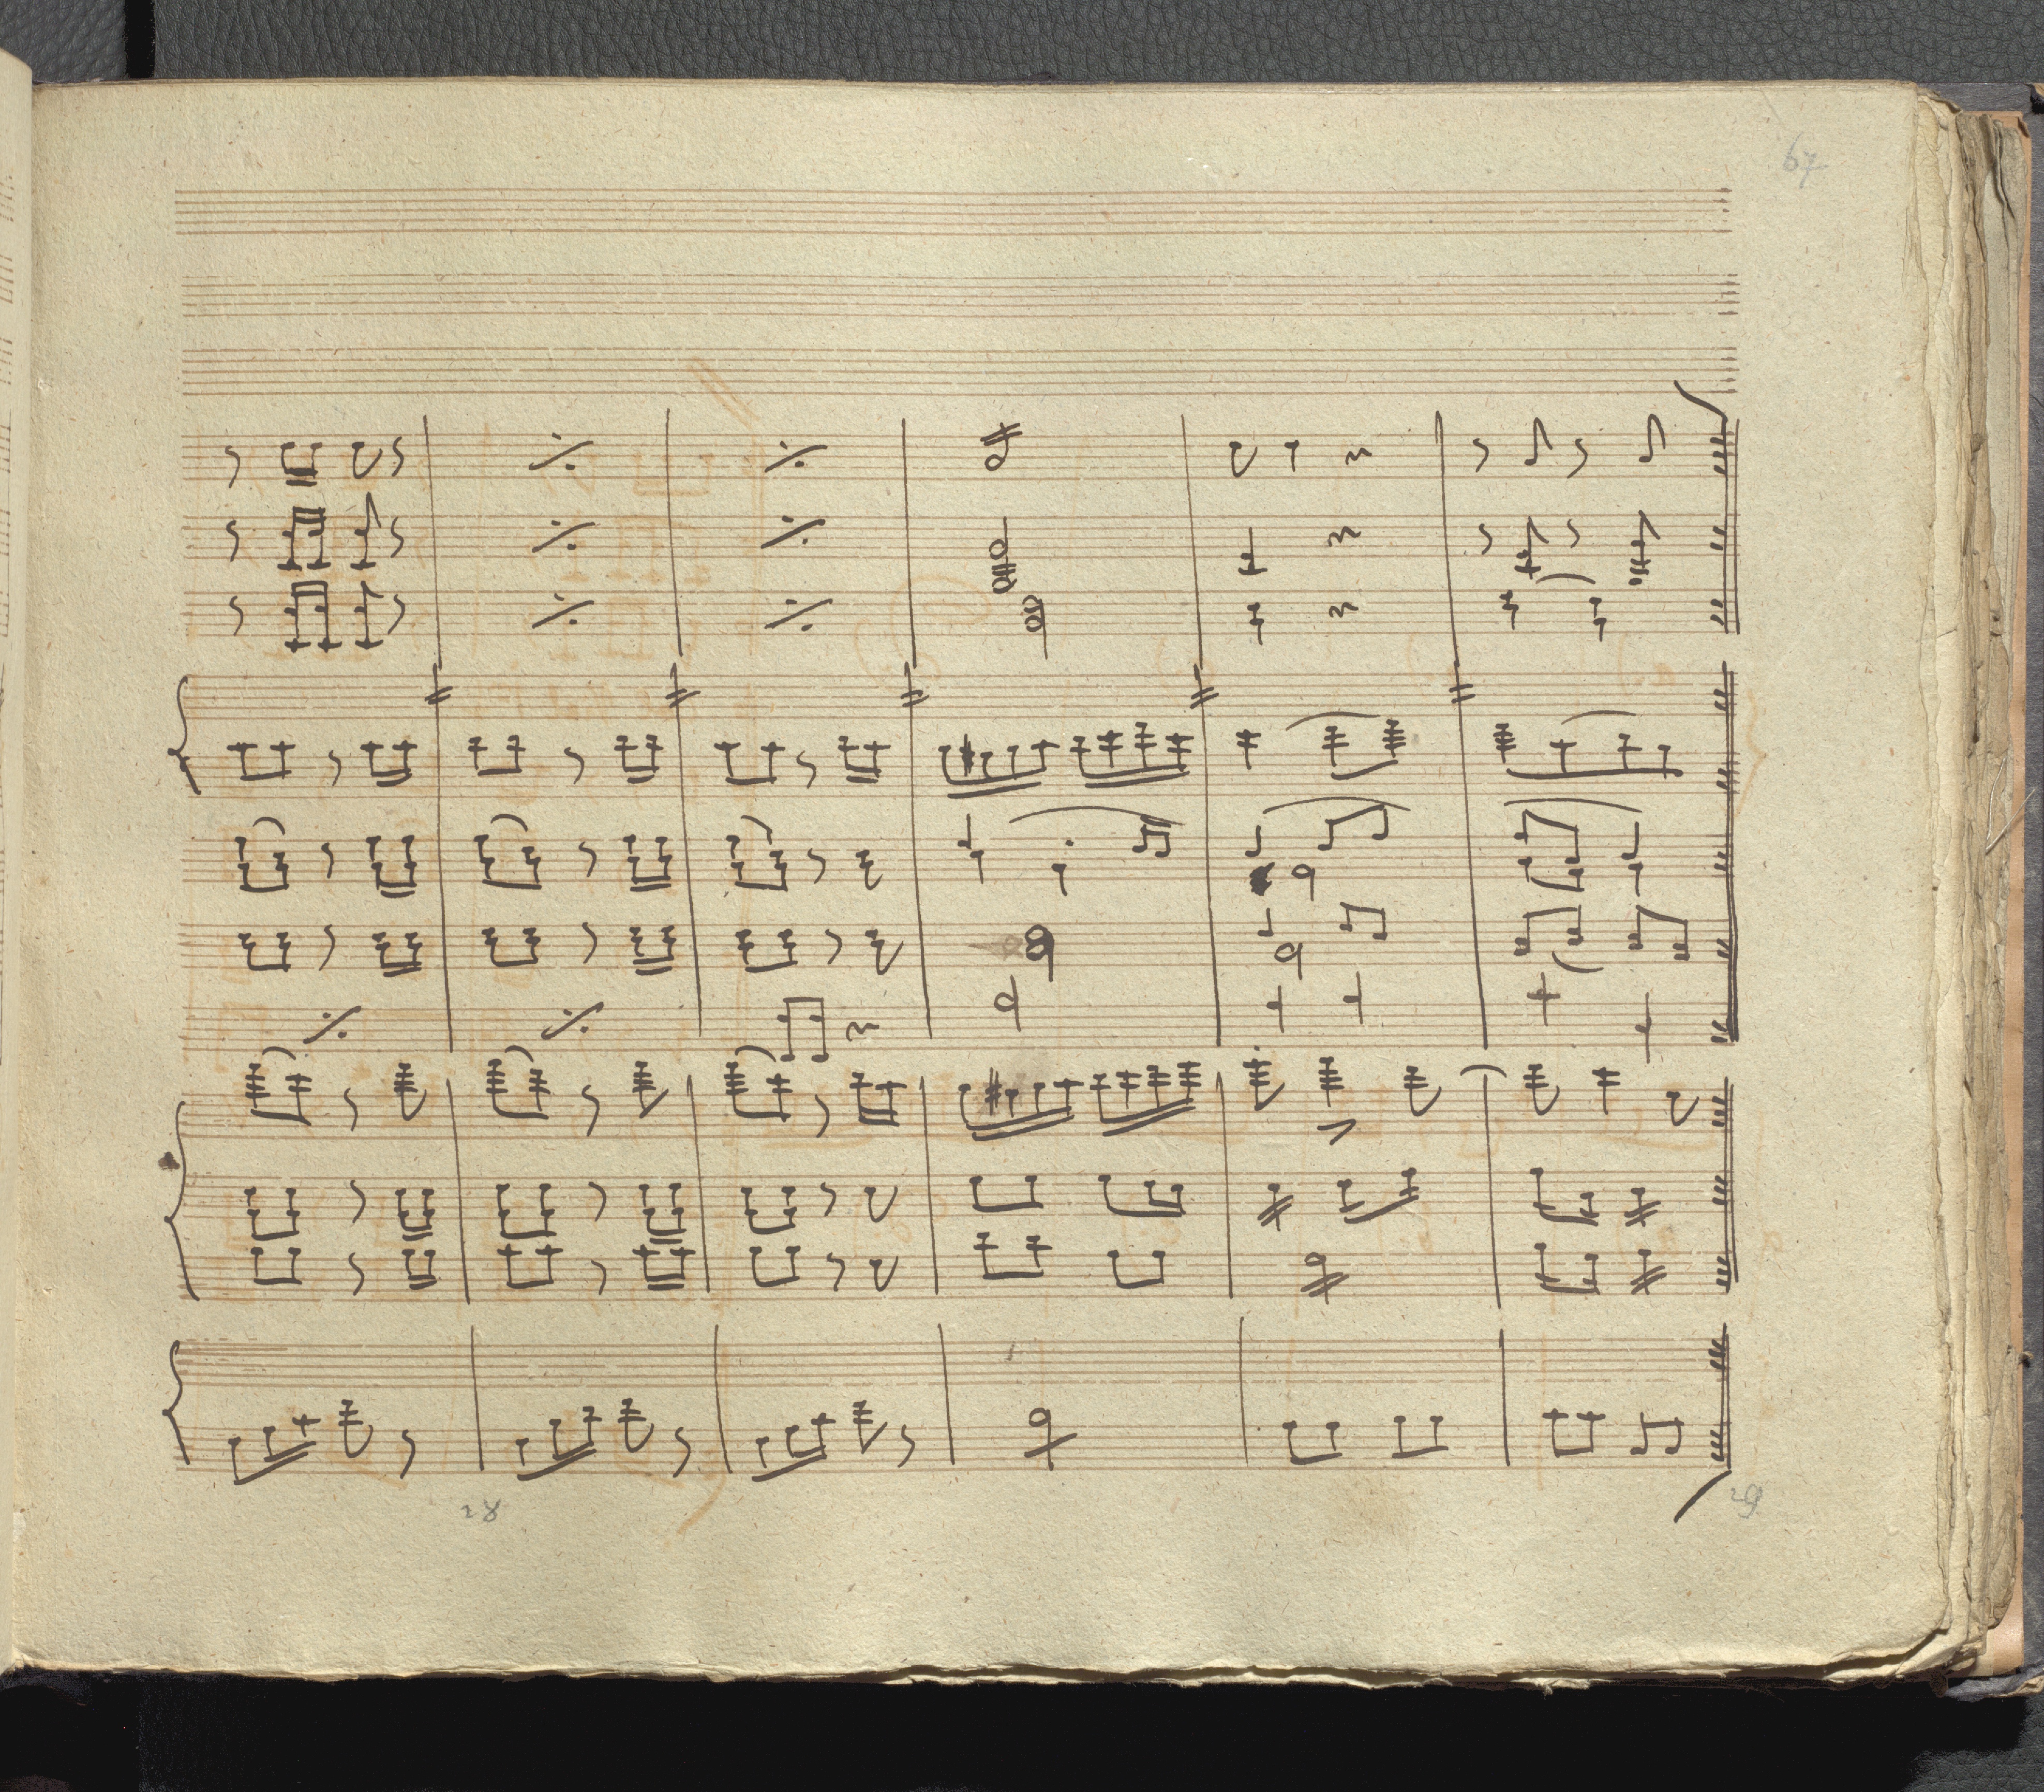 67
28
29